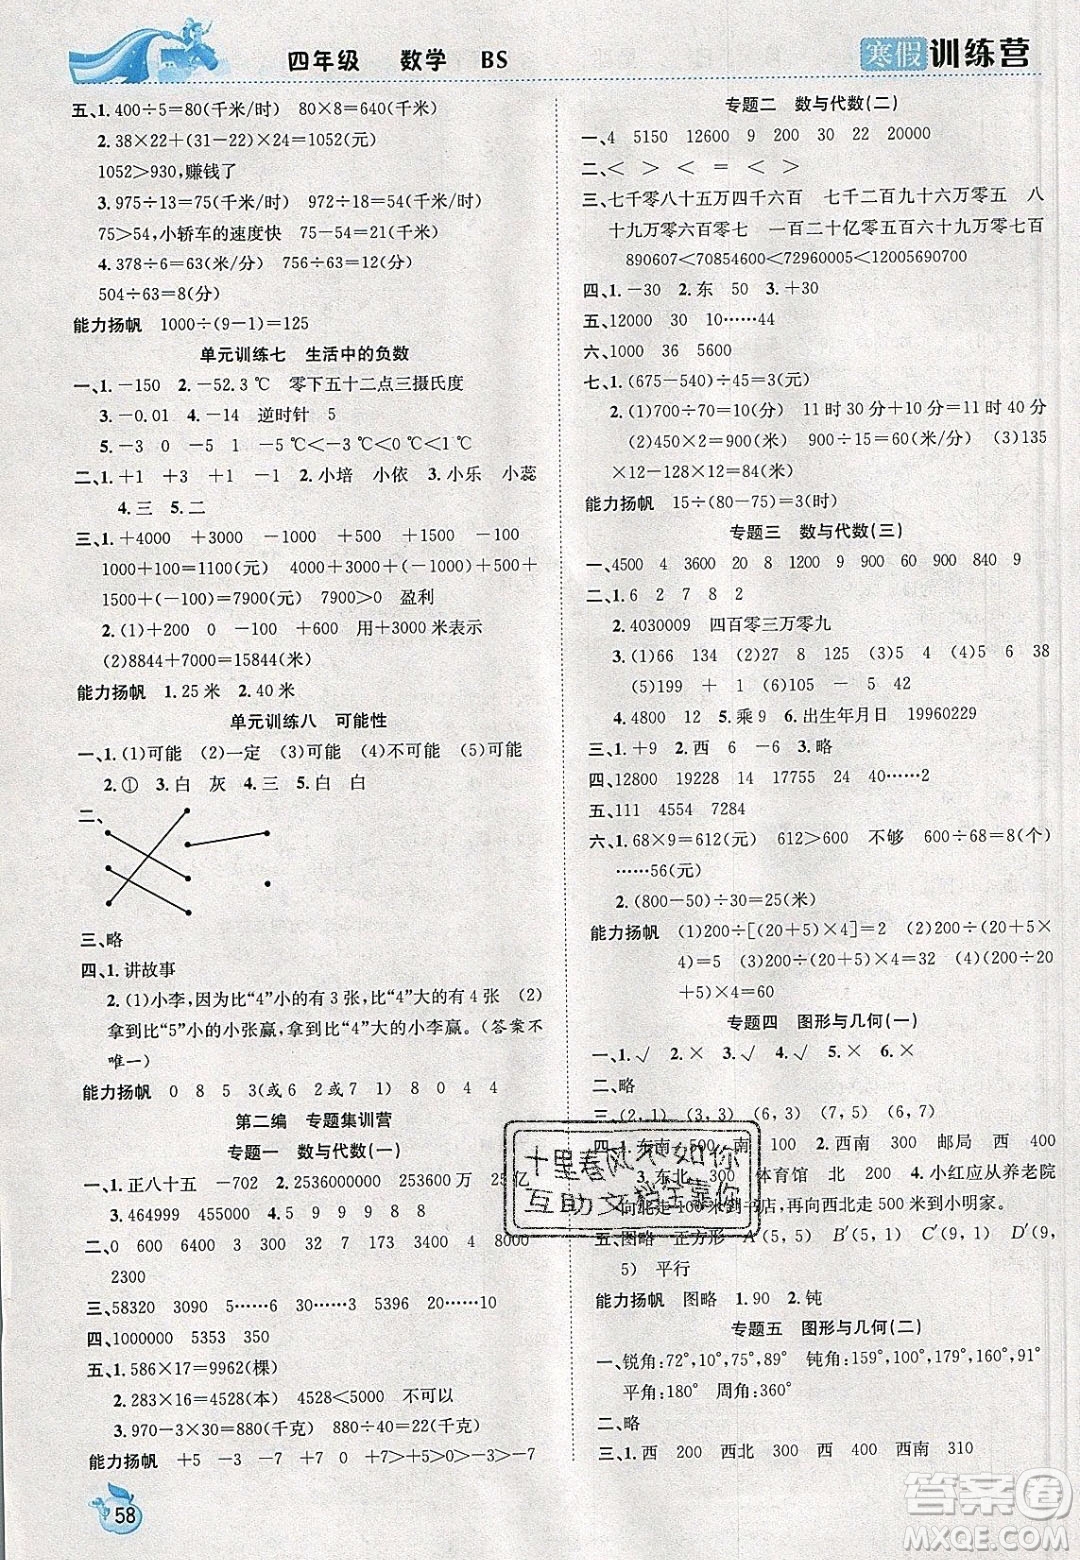 四年级 数学 BS
寒假训练营
五、1. 400÷5=80(千米/时) 80×8=640(千米)
2. 38×22+(31-22)×24=1052(元)
1052>930,赚钱了
3. 975÷13=75(千米/时) 972÷18=54(千米/时)
75>54,小轿车的速度快 75-54=21(千米/时)
4. 378÷6=63(米/分) 756÷63=12(分)
504÷63=8(分)
能力扬帆 1000÷(9-1)=125
单元训练七 生活中的负数
一、1. -150 2. -52.3 ℃ 零下五十二点三摄氏度
3. -0.01 4. -14 逆时针 5
5. -5 0 -5 1 -5℃<-3℃<0℃<1℃
二、1. +1 +3 +1 -1 2. 小培 小依 3. 小乐 小蕊
4. 三 5. 二
三、1. +4000 +3000 -1000 +1000 +1000
1000+100=1100(元) 1100+2000+4800
=7900(元) 7900>0 盈利
2. (1)+200 0 -300 +600 用+3000 米表示
(2)8844+7000=15844(米)
能力扬帆 1. 25 米 2. 40 米
单元训练八 可能性
一、1. (1)可能 (2)一定 (3)可能 (4)不可能 (5)可能
2. ① 3. 白 灰 4. 三 5. 白 白
二、
三、略
四、1. 讲故事
2. (1)小李,因为比“4”小的有 3 张,比“4”大的有 4 张 (2)
拿到比“5”小的小张赢,拿到比“4”大的小李赢。(答案不
唯一)
能力扬帆 0 8 5 3(或 6 2 或 7 1) 8 0 4 4
第二编 专题集训营
专题一 数与代数(一)
一、1. 正八十五 -702 2. 2536000000 253600万 25 亿
3. 464999 455000 4. 5 9 9 9 8 8
二、0 600 6400 120 9 3 4800 8 4 8000
2300
三、58320 3090 5……6 5……30 5396 20……10
四、1000000 5353 350
五、1. 586×17=9962(棵)
2. 283×16=4528(本) 4528<5000 不可以
3. 970-3×30=880(千克) 880÷40=22(千克)
能力扬帆 +5 -3 -7 +5>+2>-1>-3>-7
58
专题二 数与代数(二)
一、4 5150 12600 9 200 30 22 20000
二、< > < = < >
三、七千零八十五万四千六百 七千二百九十六万零五 八
十九万零六百零七 一百二十亿零五百六十九万零七百
890607<70854600<72960005<12005690700
四、1. -30 2. 东 50 3. +30
五、12000 30 10……44
六、1000 36 5600
七、1. (675-540)÷45=3(元)
2. (1)700÷70=10(分) 11 时 30 分+10 分=11 时 40 分
(2)450×2=900(米) 900÷15=60(米/分) (3)135
×12-128×12=84(米)
能力扬帆 15÷(80-75)=3(时)
专题三 数与代数(三)
一、4500 4 3600 20 8 1200 60 900 840 9
二、1. 6 2 7 8 2
2. 4030009 四百零三万零九
3. (1)66 134 (2)199 + 1 (3)5 (4)5 6 38
(5)4 1
4. 4800 12 5. 乘 9 6. 出生年月日 19960229
三、1. +9 2. 西 6 -6 3. 略
四、12800 19228 14 17755 24 40……2
五、111 4554 7284
六、1. 68×9=612(元) 612>600 不够 600÷68=8(个)
……56(元)
2. (800-50)÷30=25(米)
能力扬帆 (1)200÷[(20+5)×4]=2 (2)200÷(20+5×
4)=5 (3)(200÷20+5)×4=60 (4)200÷20
+5×4=60
专题四 图形与几何(一)
一、1. √ 2. × 3. × 4. √ 5. × 6. ×
二、略
三、(2,1) (3,3)
四、1. 东南 500 南 100 2. 西南 500 邮局 西南
体育馆 北 200 4. 小红应从养老院
向北走 100 米到书店,再向西北走 500 米到小明家。
五、图略 正方形 A′(5,1) B′(5,1) C′(9,1) D′(9,
5) 平行
能力扬帆 图略 1. 90 2. 钝
专题五 图形与几何(二)
一、锐角:72°,10°,75°,89° 钝角:159°,100°,179°,160°,91°
平角:180° 周角:360°
二、略
三、1. 西 200 西北 200 西南 200 西南 310
十里春风不如你
互助文档王靠你
答案圈
MXQE.COM